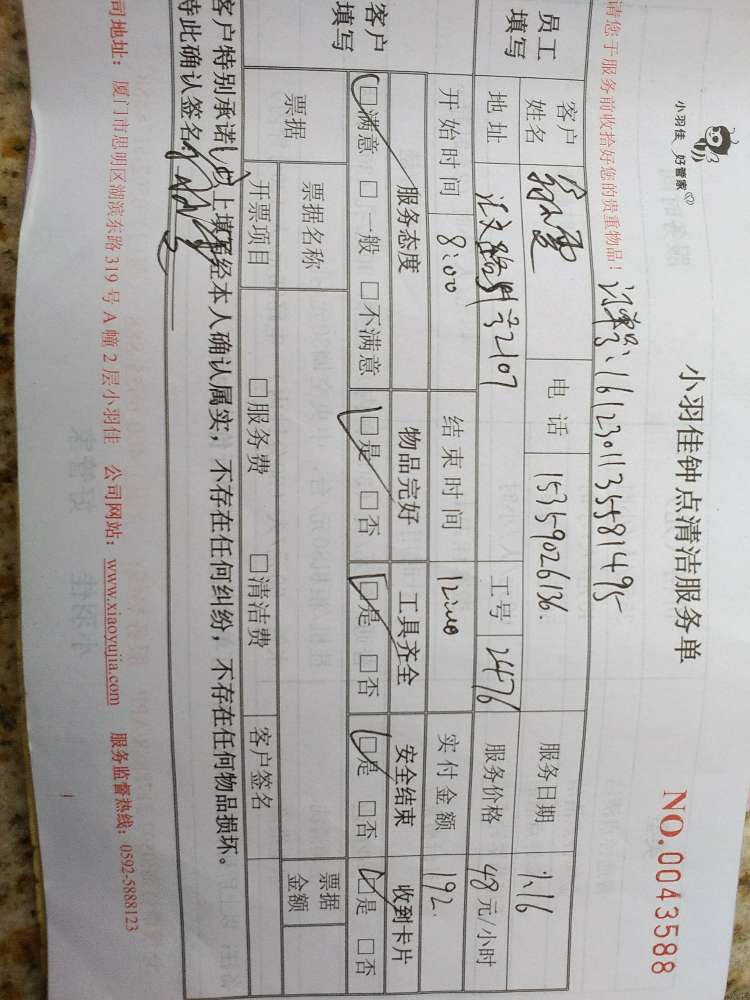 小羽佳 好管家
小羽佳钟点清洁服务单
NO.0043588
请您于服务前收拾好您的贵重物品!
订单号:16123011355581495
员工填写 客户姓名 电话 15359026136. 服务日期 1.16
地址 汇文路 号2107 工号 2476 服务价格 48 元/小时
开始时间 8:00 结束时间 12:00 实付金额 192.
客户填写 服务态度 物品完好 工具齐全 安全结束 收到卡片
□满意 □一般 □不满意 □是 □否 □是 □否 □是 □否 □是 □否
票据 票据名称 票据金额
开票项目 □服务费 □清洁费 客户签名
客户特别承诺:以上填写经本人确认属实,不存在任何纠纷,不存在任何物品损坏。
特此确认签名:
司地址:厦门市思明区湖滨东路 319 号 A 幢 2 层小羽佳 公司网站:www.xiaoyujia.com 服务监督热线:0592-5888123